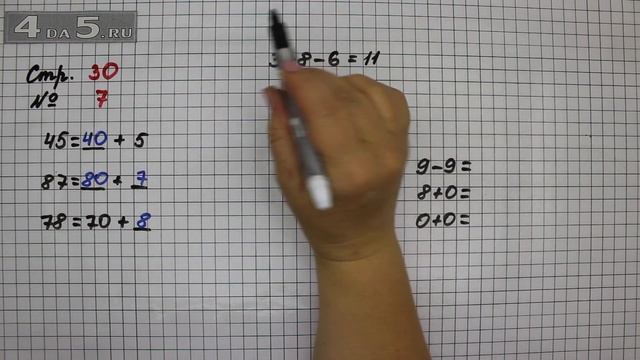 4 DA 5.RU
Стр. 30
№ 7
45=40 + 5
87=80 + 7
78=70 + 8
8-6=11
9-9=
8+0=
0+0=